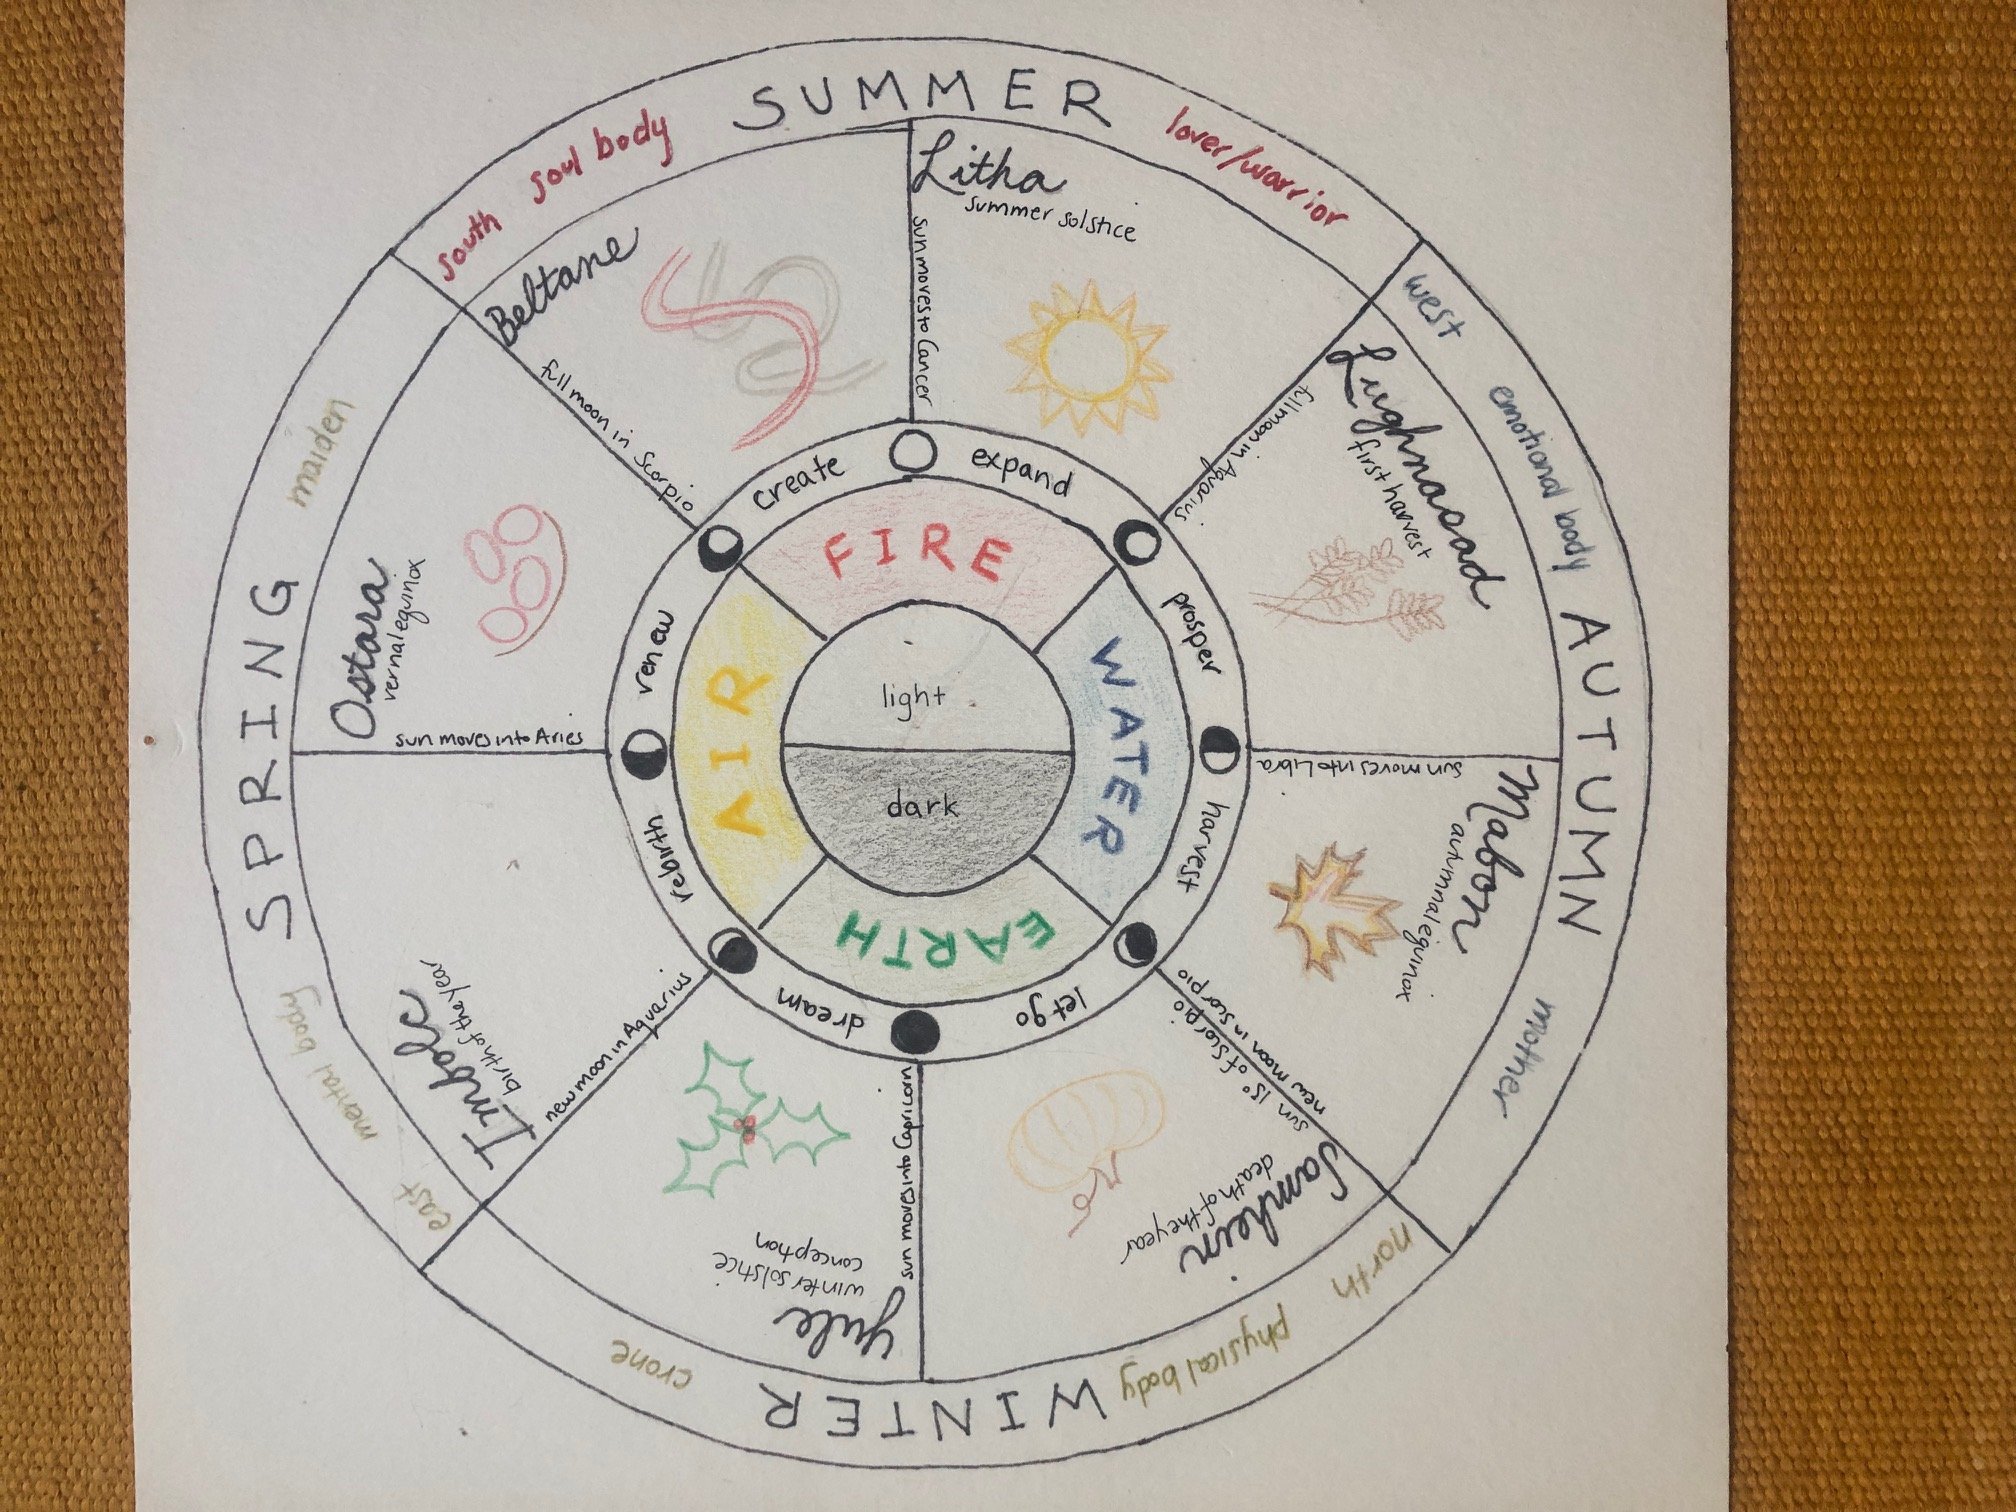 SUMMER
south
soul body
lover/warrior
AUTUMN
west
emotional body
mother
WINTER
north
physical body
crone
SPRING
east
mental body
maiden
Litha
summer solstice
sun moves to Cancer
Lughnasad
first harvest
full moon in Aquarius
Mabon
autumnal equinox
sun moves into Libra
Samhein
death of the year
sun 15° of Scorpio
new moon in Scorpio
Yule
winter solstice
conception
sun moves into Capricorn
Imbolc
birth of the year
new moon in Aquarius
Ostara
vernal equinox
sun moves into Aries
Beltane
full moon in Scorpio
expand
prosper
harvest
let go
dream
rebirth
renew
create
FIRE
WATER
EARTH
AIR
light
dark